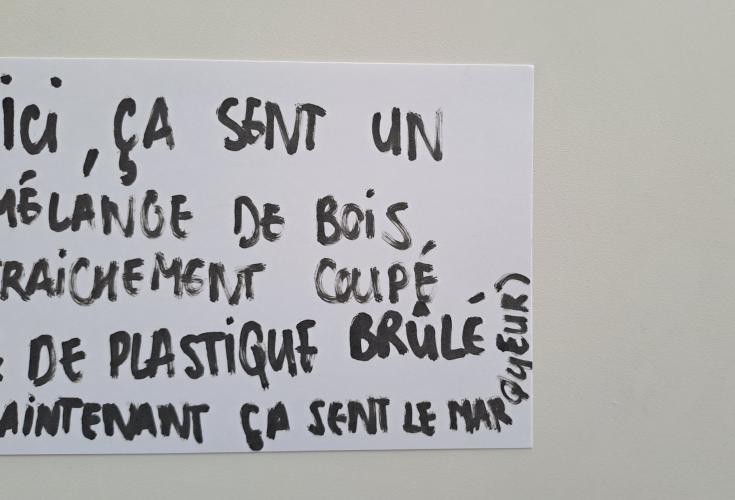 ici, ÇA SENT UN
MÉLANGE DE BOiS
FRAiCHEMENT COUPÉ
& DE PLASTiQUE BRÛLÉ
MAiNTENANT ÇA SENT LE MARQUEUR)